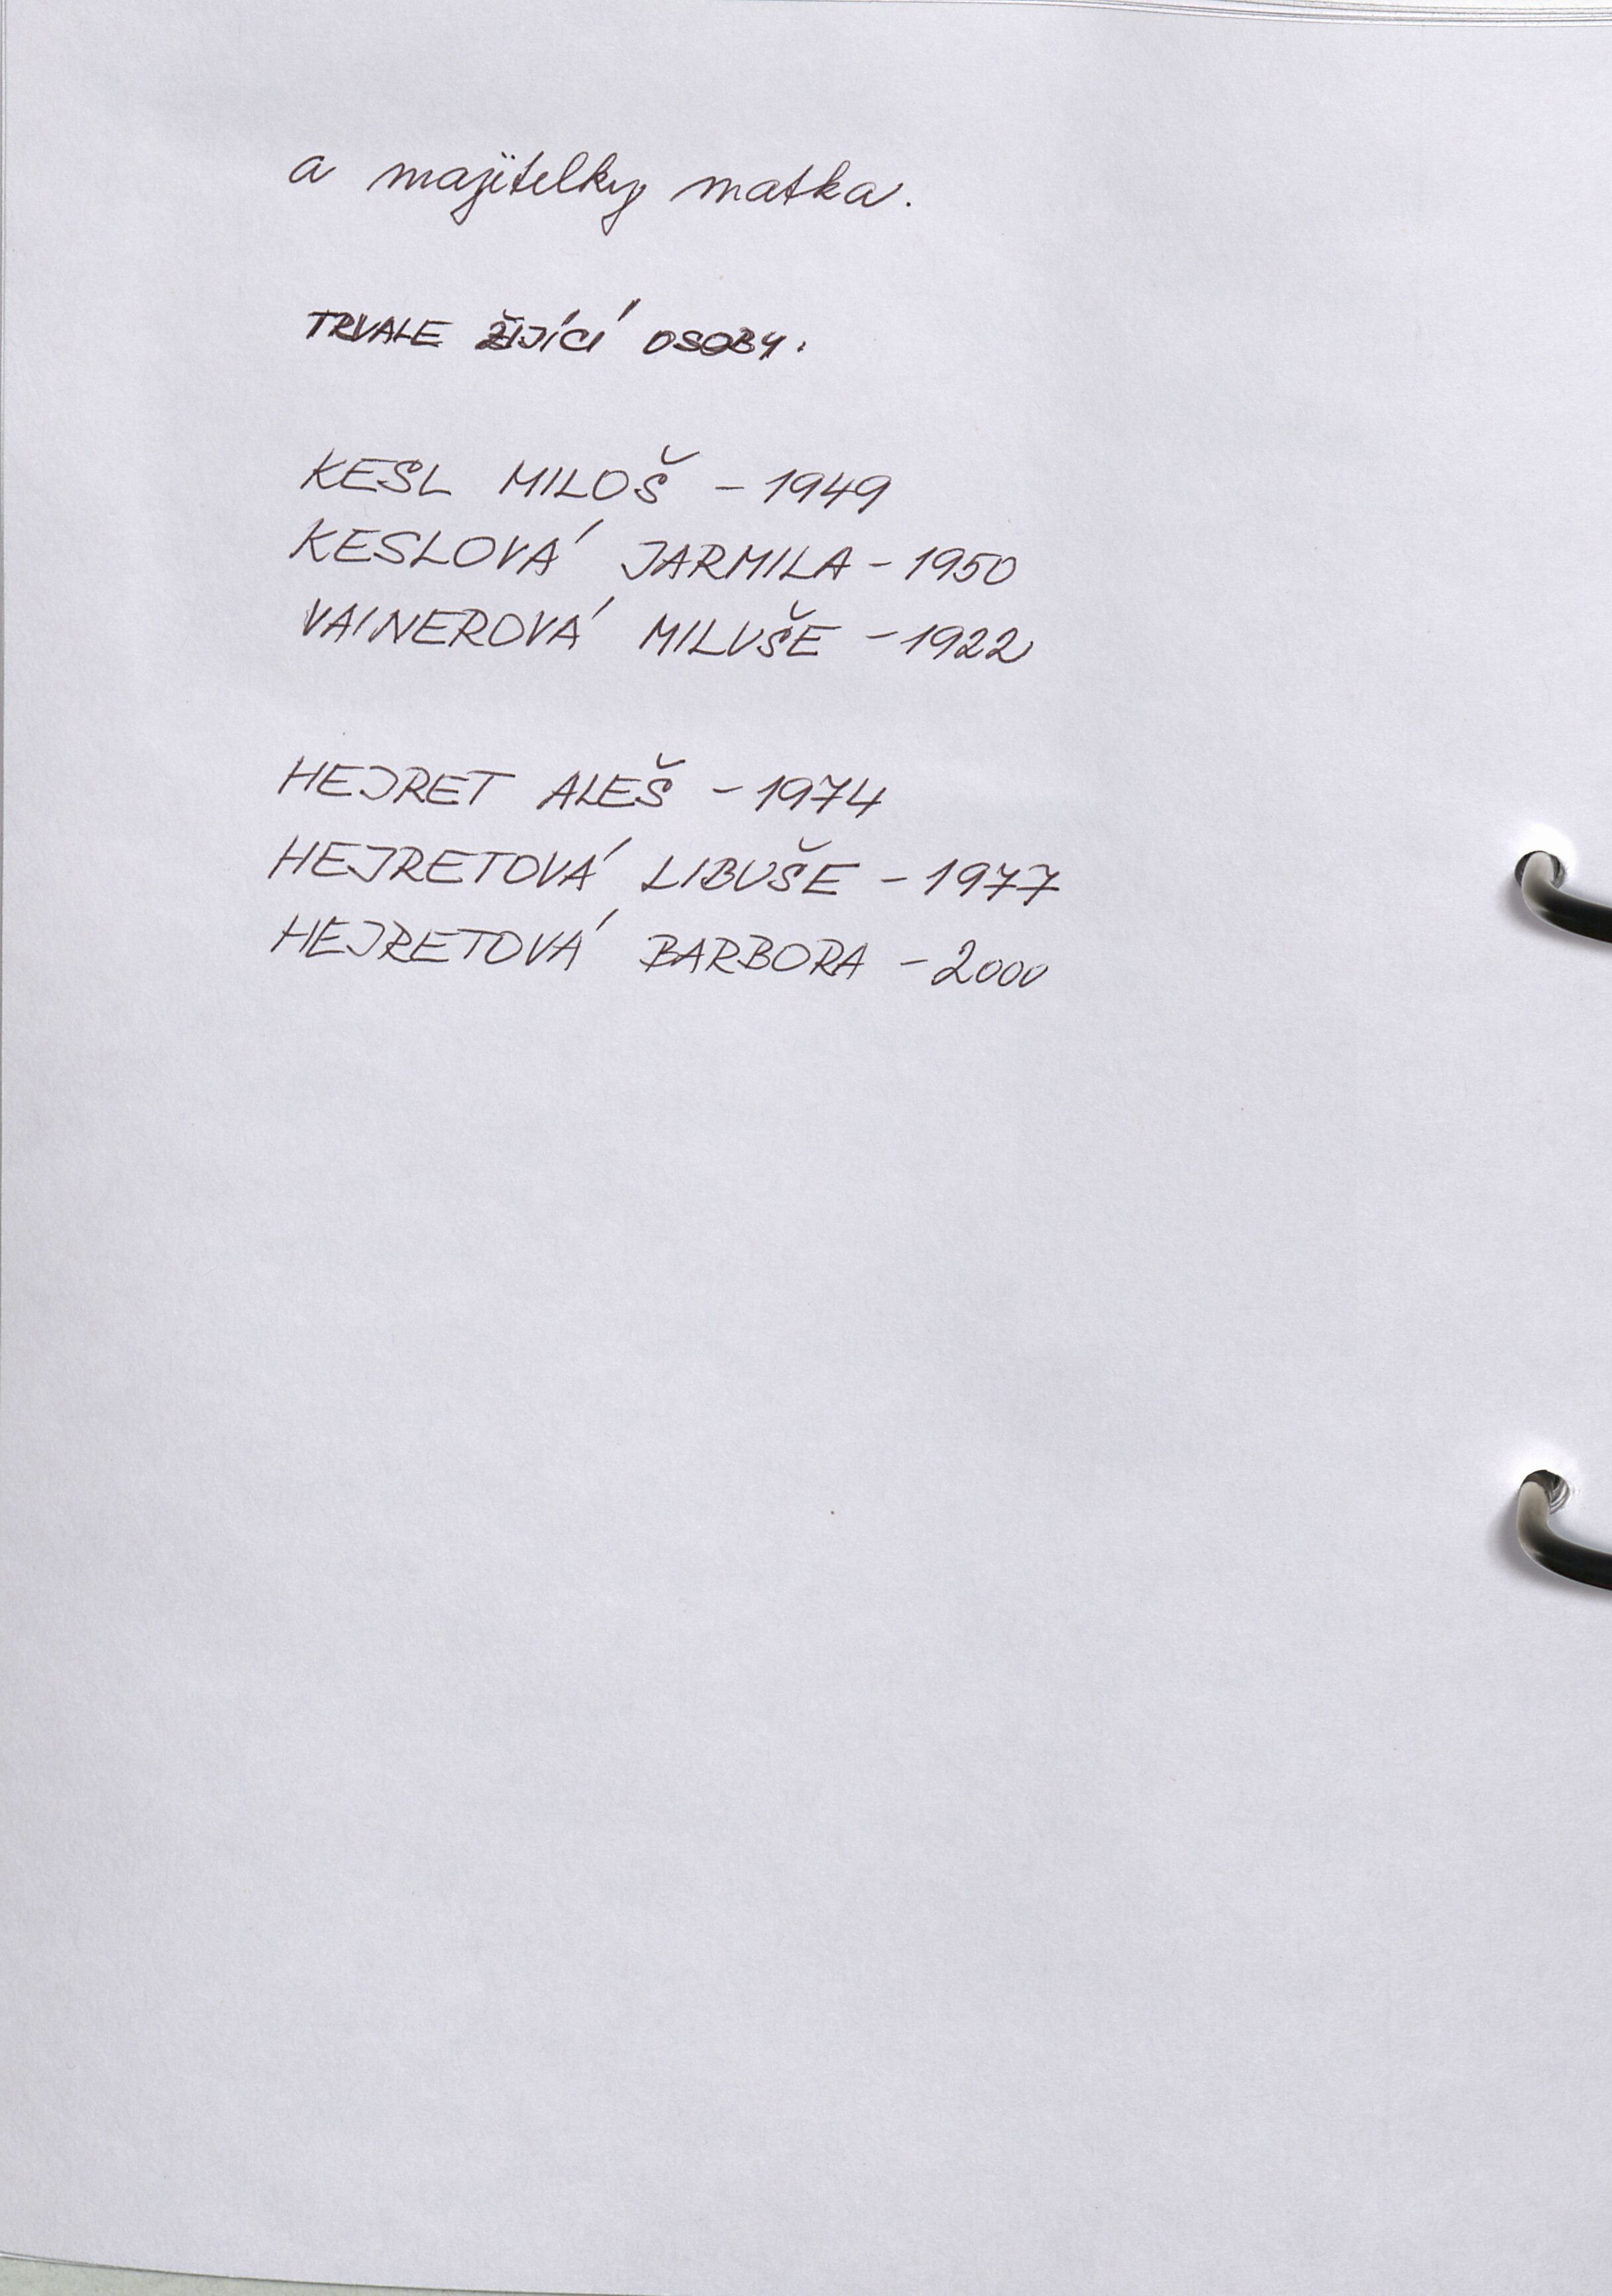 a majitelky matka.
TRVALE ŽIJÍCÍ OSOBY:
KESL MILOŠ - 1949
KESLOVÁ JARMILA - 1950
VAINEROVÁ MILUŠE - 1922
HEJRET ALEŠ - 1974
HEJRETOVÁ LIBUŠE - 1977
HEJRETOVÁ BARBORA - 2000